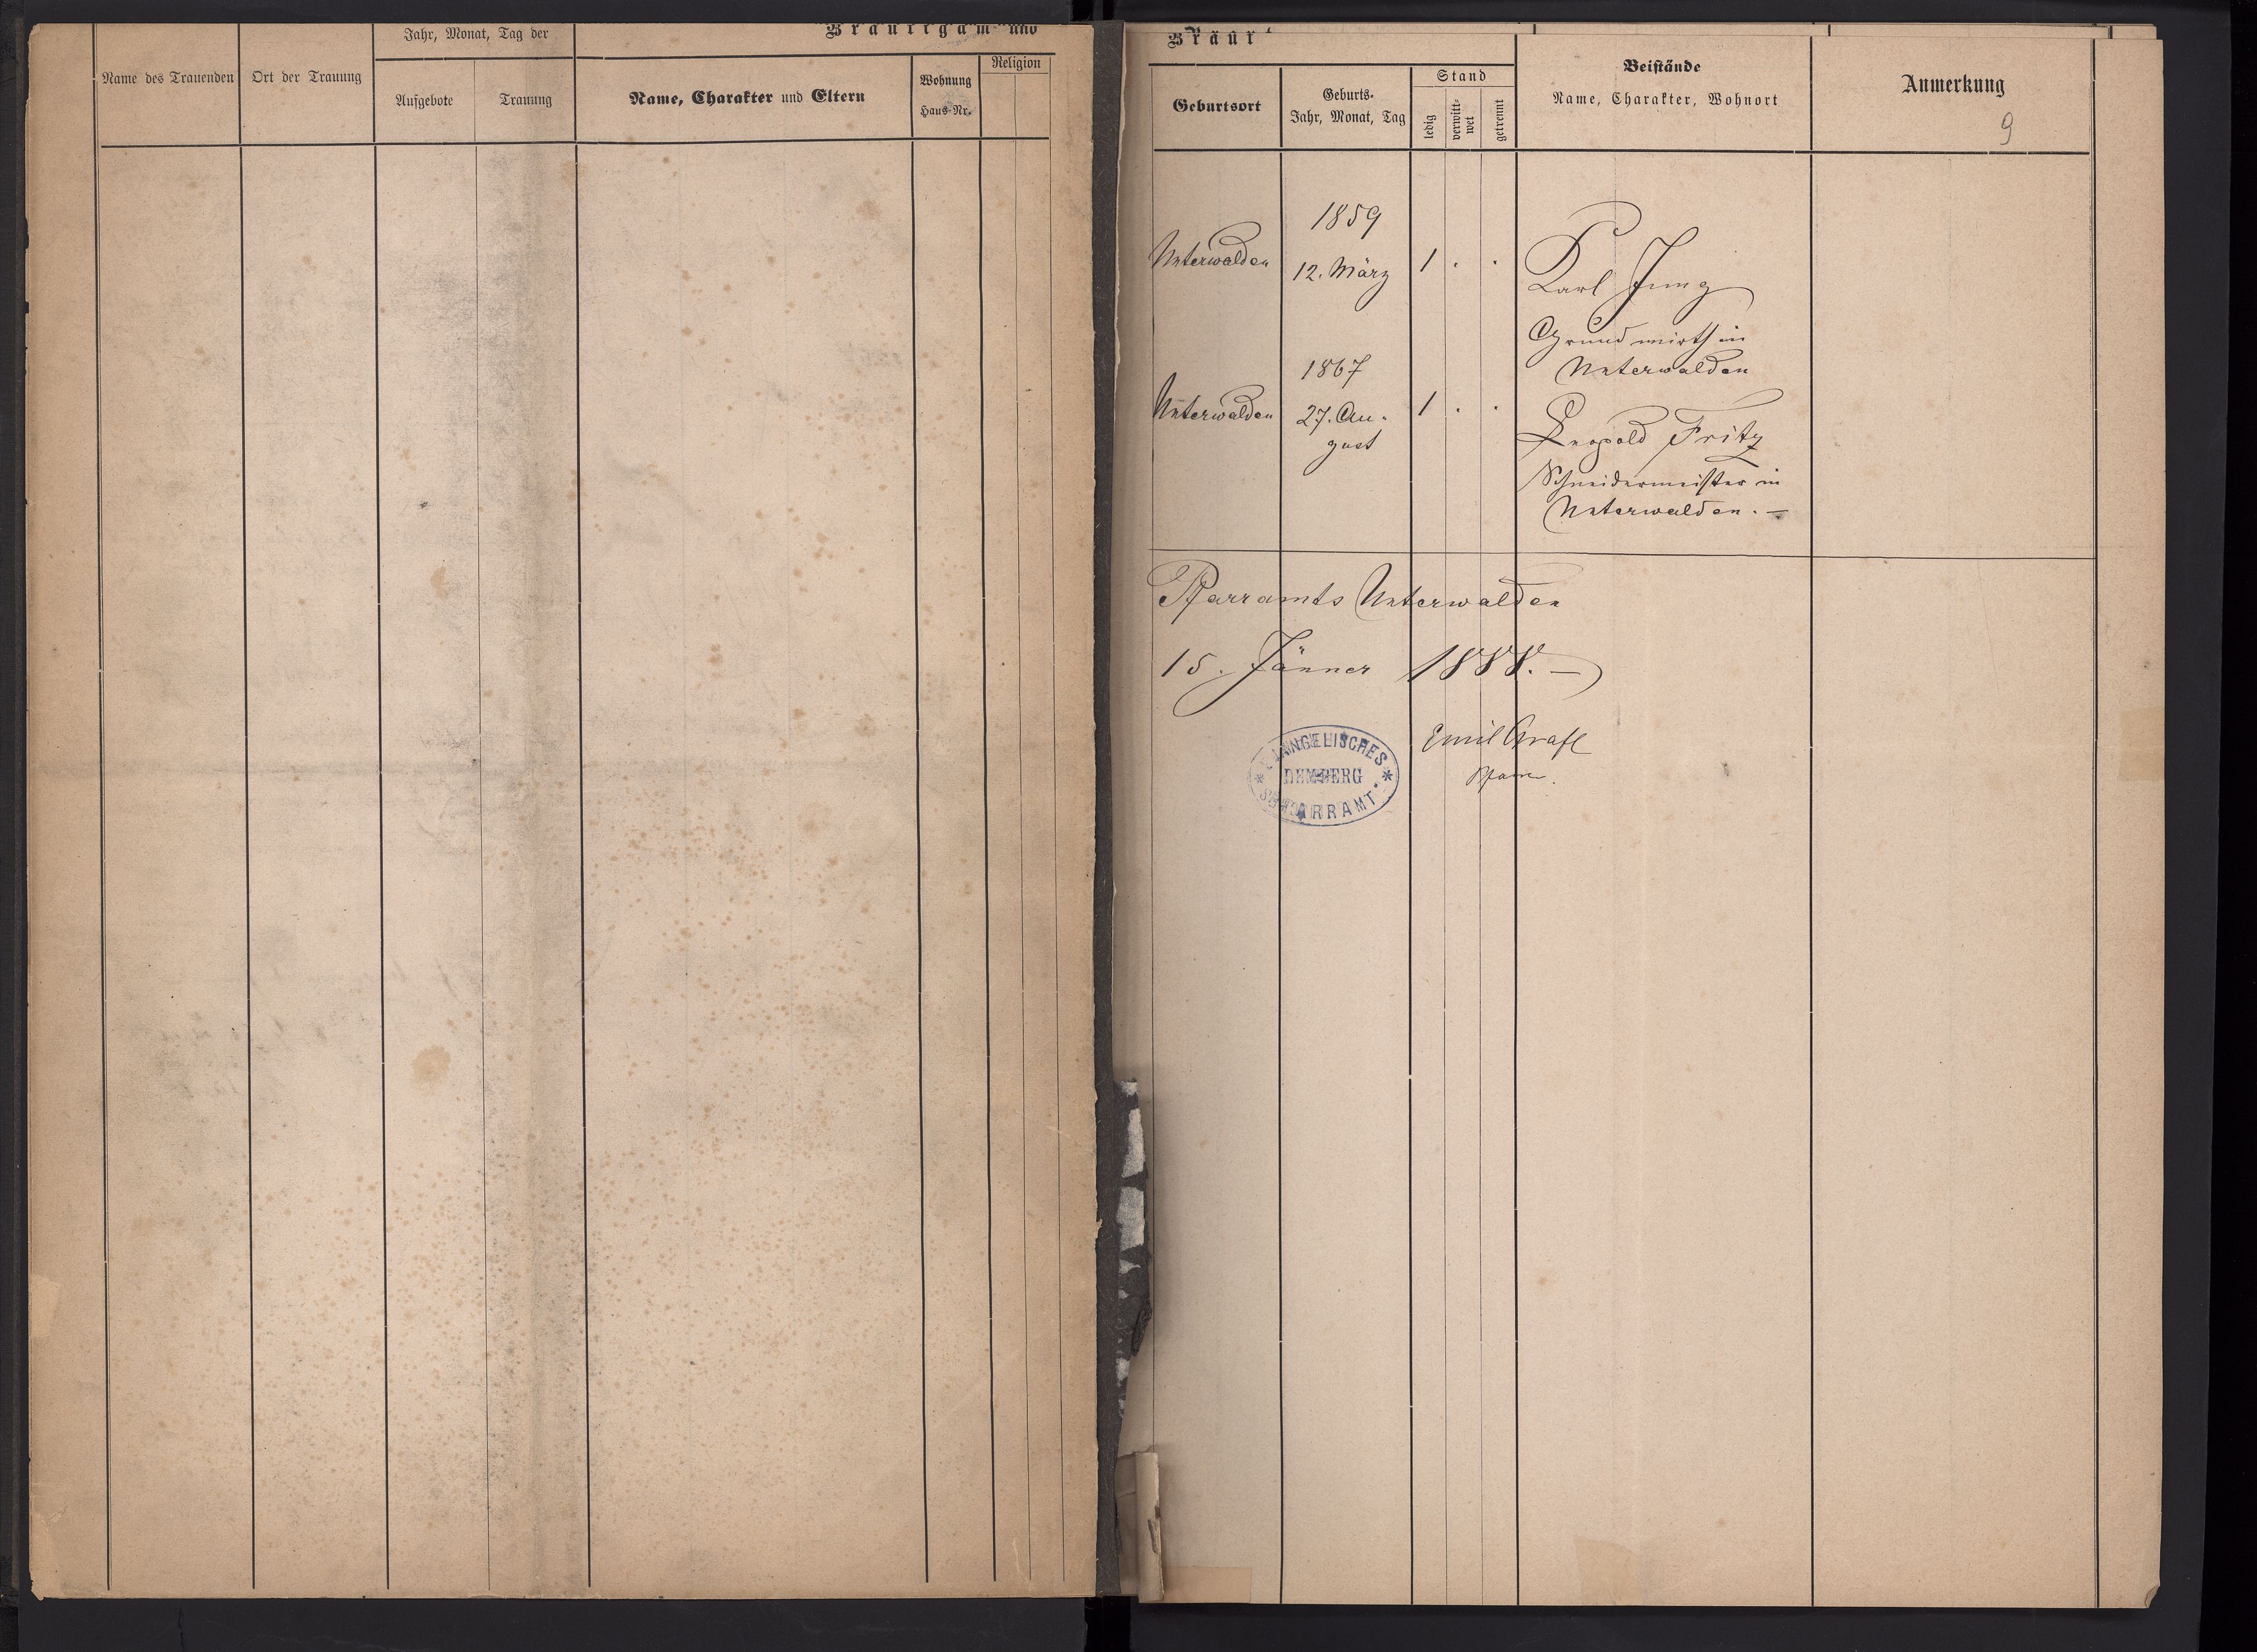 Bräutigam und
Name des Trauenden
Ort der Trauung
Jahr, Monat, Tag der
Aufgebote
Trauung
Name, Charakter und Eltern
Wohnung
Haus-Nr.
Religion
Bräut
Geburtsort
Geburts-
Jahr, Monat, Tag
Stand
ledig
verwitt-
wet
getrennt
Beistände
Name, Charakter, Wohnort
Anmerkung
9
Unterwalden
1859
12. März
1 . .
Karl Jung
Grundwirth in
Unterwalden
Unterwalden
1867
27. Au-
gust
1 . .
Leopold Fritz
Schneidermeister in
Unterwalden. —
Pfarramts Unterwalden
15. Jänner 1888. —
EVANGELISCHES
PFARRAMT
Emil
Pfarrer.